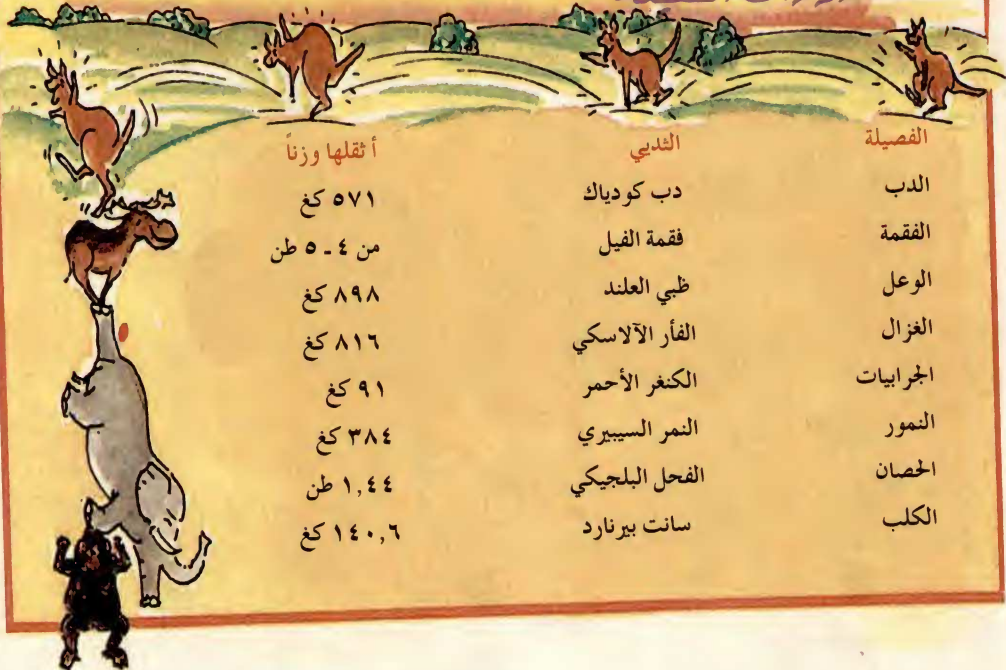 الفصيلة الثديي أثقلها وزناً
الدب دب كودياك ٥٧١ كغ
الفقمة فقمة الفيل من ٤ - ٥ طن
الوعل ظبي العلند ٨٩٨ كغ
الغزال الفأر الآلاسكي ٨١٦ كغ
الجرابيات الكنغر الأحمر ٩١ كغ
النمور النمر السيبيري ٣٨٤ كغ
الحصان الفحل البلجيكي ١,٤٤ طن
الكلب سانت بيرنارد ١٤٠,٦ كغ